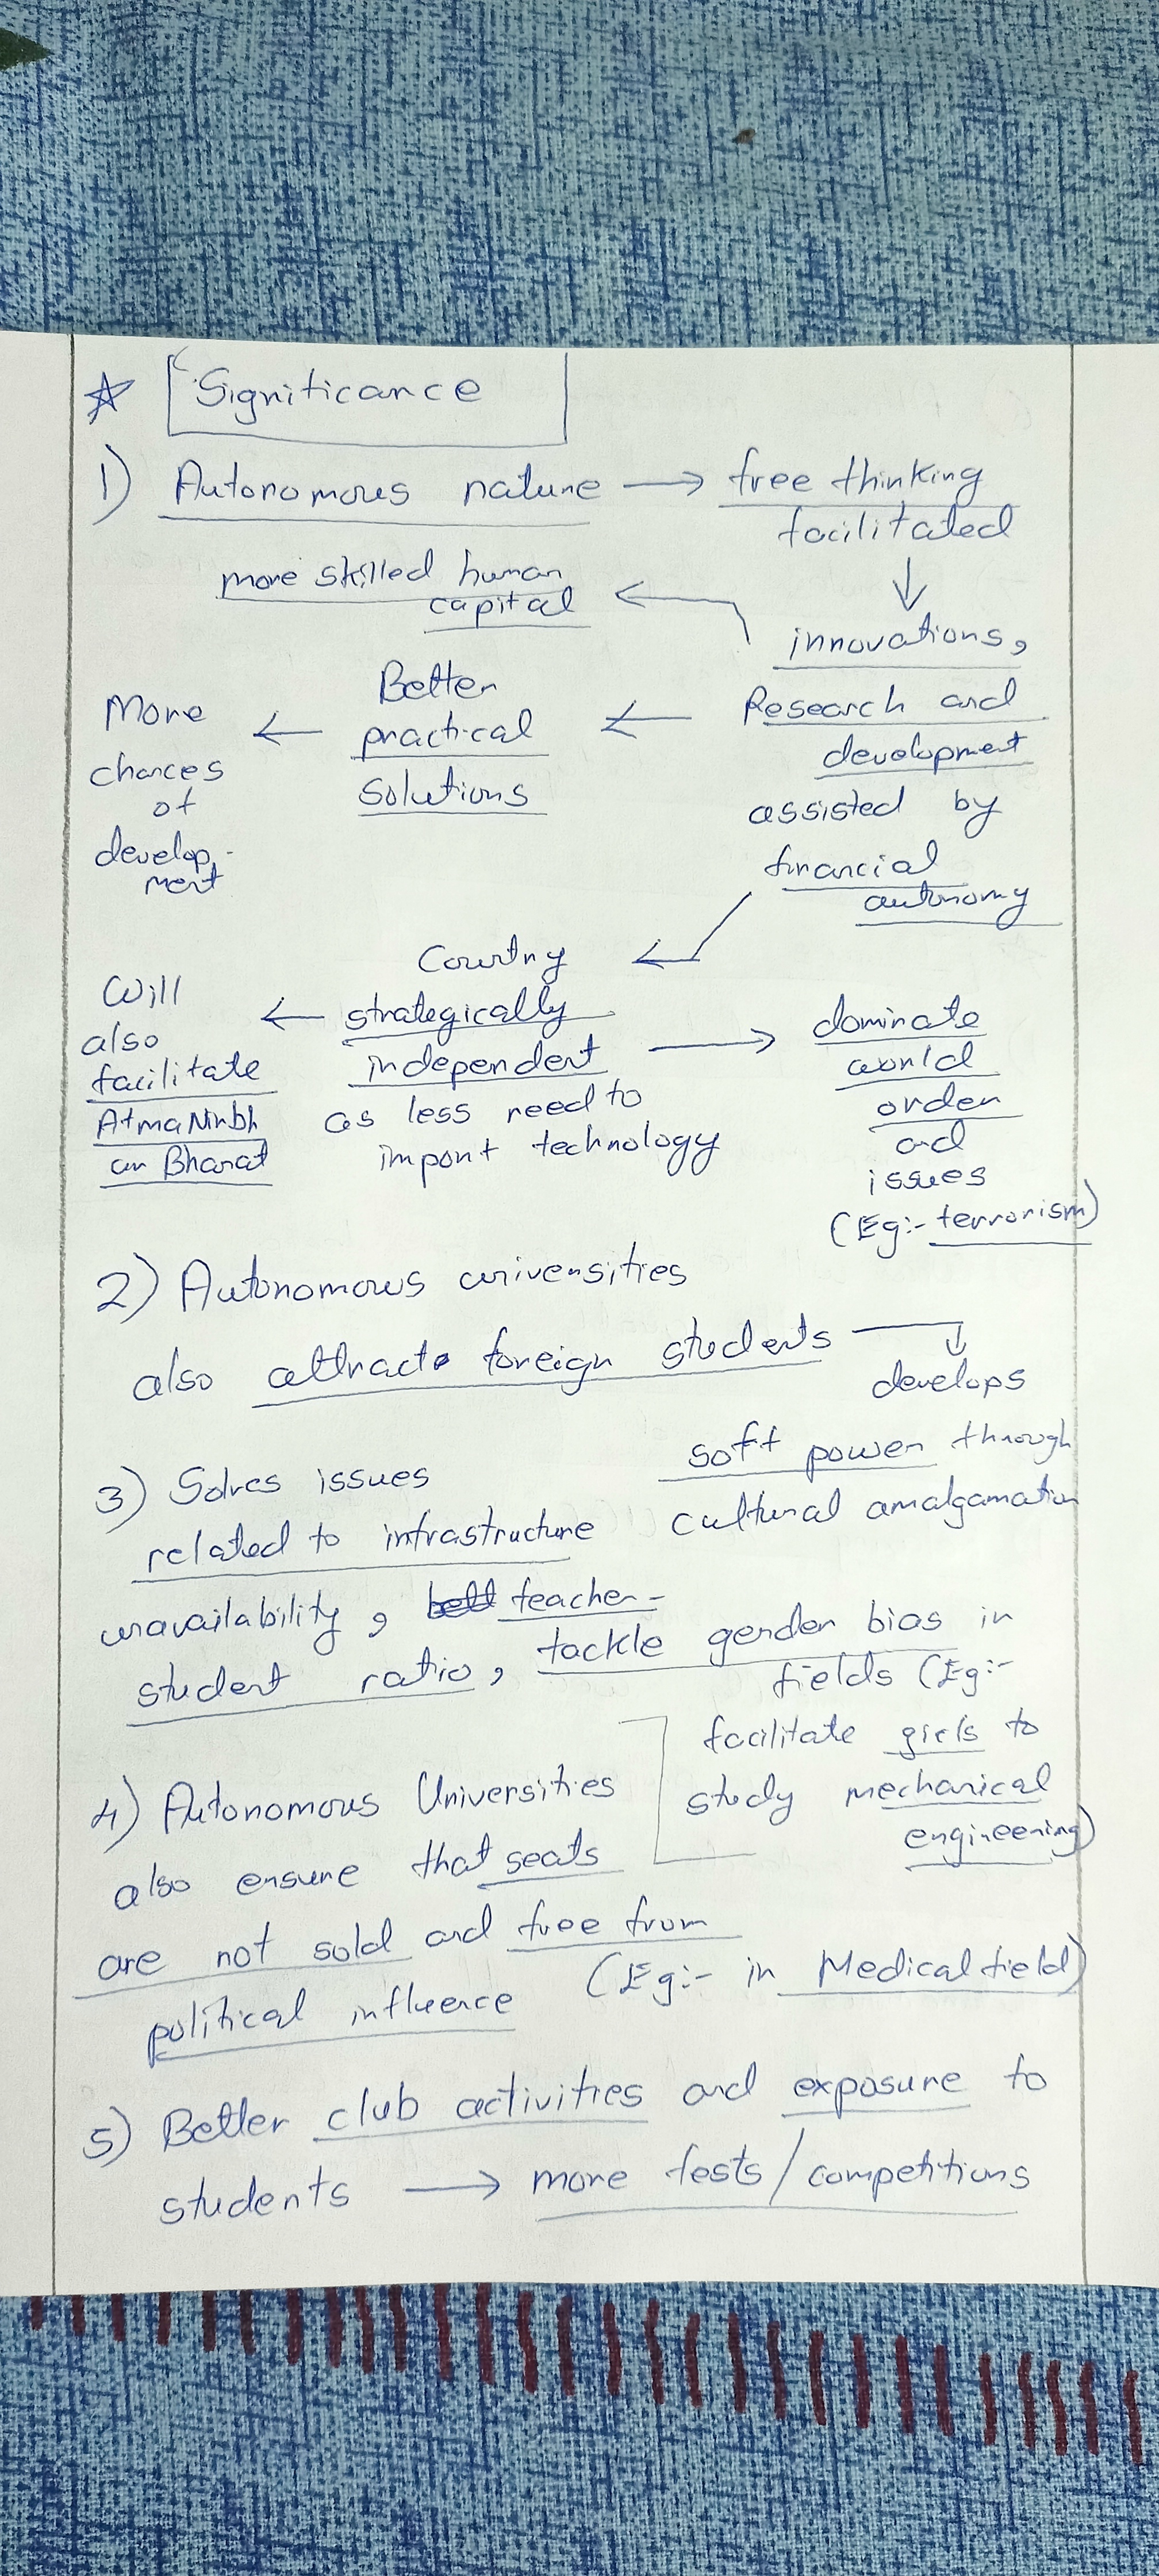 ☆ Significance
1) Autonomous nature → free thinking
facilitated
↓
more skilled human
capital ←
innovations,
Research and
development
assisted by
financial
autonomy
← Better
practical
Solutions
← More
chances
of
develop-
ment
← Country
strategically
independent
as less need to
import technology
← Will
also
facilitate
AtmaNirbh
ar Bharat
→ dominate
world
order
and
issues
(Eg:- terrorism)
2) Autonomous universities
also attract foreign students
↓
develops
soft power through
cultural amalgamation
3) Solves issues
related to infrastructure
unavailability, teacher-
student ratio, tackle gender bias in
fields (Eg:-
facilitate girls to
study mechanical
engineering)
4) Autonomous Universities
also ensure that seats
are not sold and free from
political influence (Eg:- in Medical field)
5) Better club activities and exposure to
students → more fests/competitions